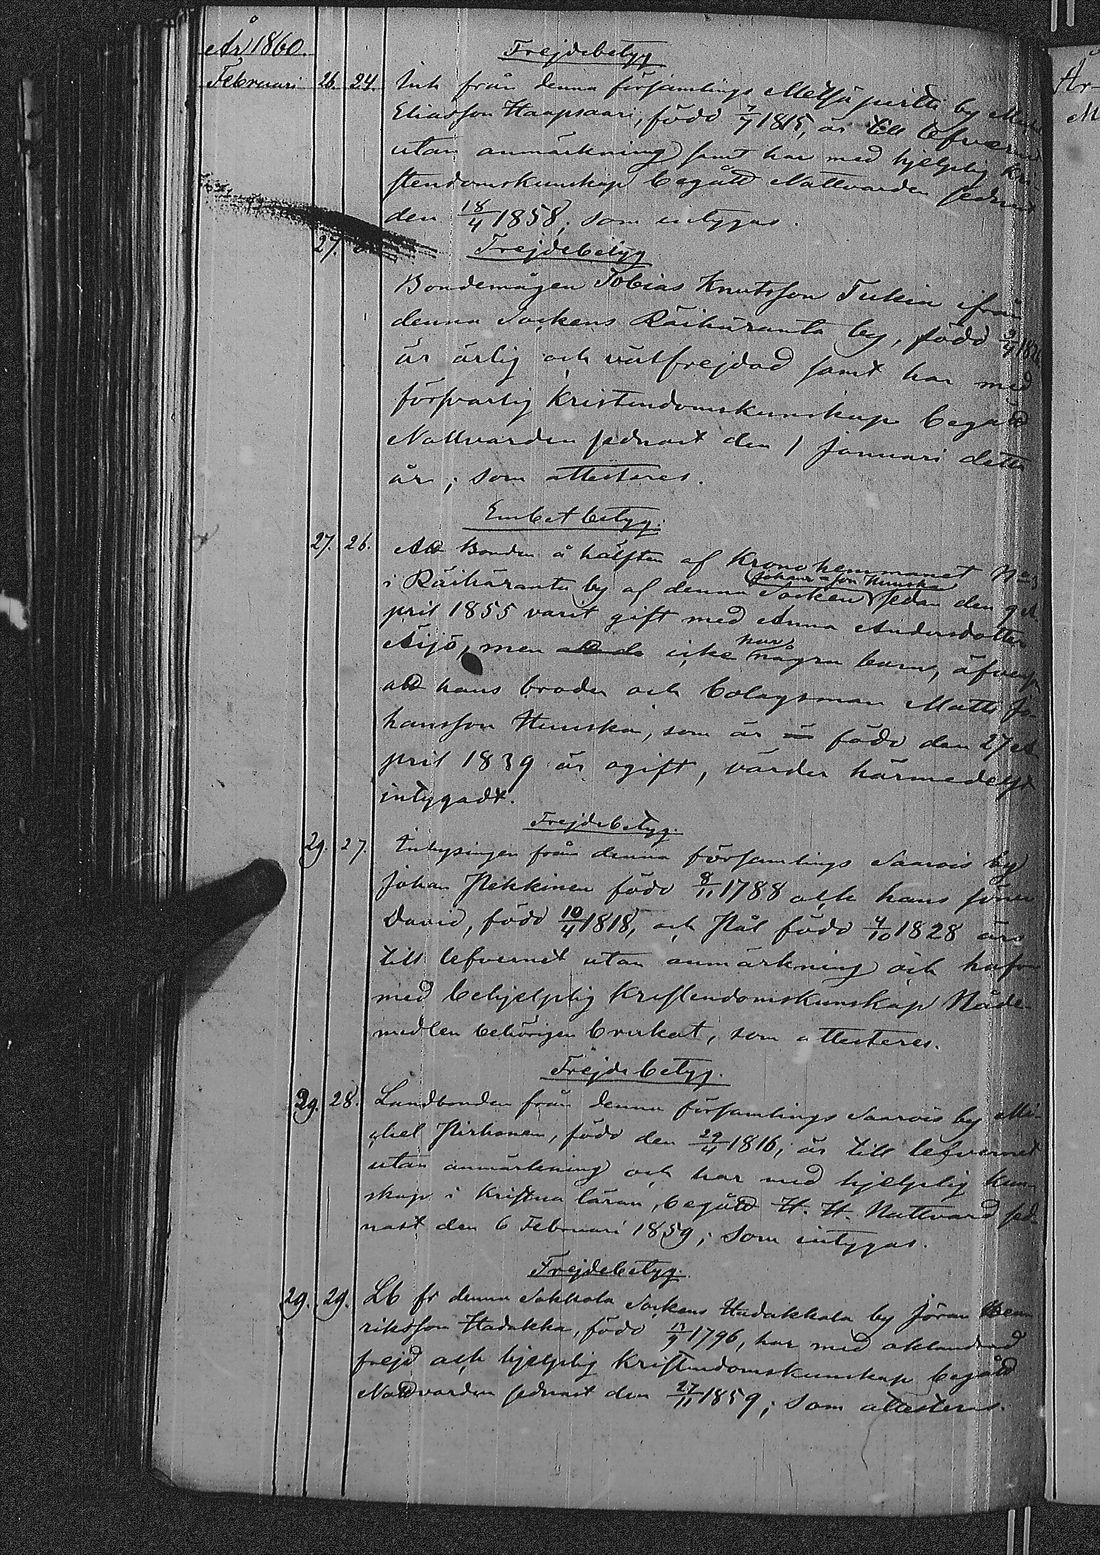 År 1860
Frejdebetyg
Februari 26. 24. Inh från denna församlings Metsäpirtti by Matts
Eliasson Haapsaari, född 1815, är till lefvernet
utan anmärkning samt har med hjelplig kri-
stendomskunskap begått Nattvarden sednast
den 18/4 1858, som intygas.
27. Frejdebetyg
Bondemågen Tobias Knutsson Tukia ifrån
denna Sockens Räihäranta by, född
är ärlig och välfrejdad samt har med
försvarlig kristendomskunskap begått
Nattvarden sednast den 1 Januari detta
år; som attesteras.
Embetbetyg.
27. 26. Att Bonden å hälften af Kronohemmanet No 3
i Räihäranta by af denna Socken Johan a son Hunska sedan den 9 A-
pril 1855 varit gift med Anna Andersdotter
Äijö, men icke har några barn, äfvensom
att hans broder och bolagsman Matts Jo-
hansson Hunska, som är född den 27 A-
pril 1839 är ogift, varder härmedelst
intygadt.
Frejdebetyg.
29. 27. Inhysingen från denna församlings Saarois by
Johan Pekkinen född 8/11 1788 och hans söner
David, född 10/4 1818, och Pål född 4/10 1828 äro
till lefvernet utan anmärkning och hafva
med behjelplig kristendomskunskap Nåde-
medlen behörigen brukat, som attesteras.
Frejdebetyg.
29. 28. Landbonden från denna församlings Saarois by Mi-
chel Pirhonen, född den 29/4 1816, är till lefvernet
utan anmärkning och har med hjelplig kun-
skap i kristna läran, begått H. H. Nattvard sed-
nast den 6 Februari 1859; som intygas.
Frejdebetyg.
29. 29. Lb fr denna Sakkola Sockens Hadakkala by Jöran Hen-
riksson Hadakka, född 1796, har med oklandrad
frejd och hjelplig kristendomskunskap begått
Nattvarden sednast den 27/11 1859; som attesteras.
År
M